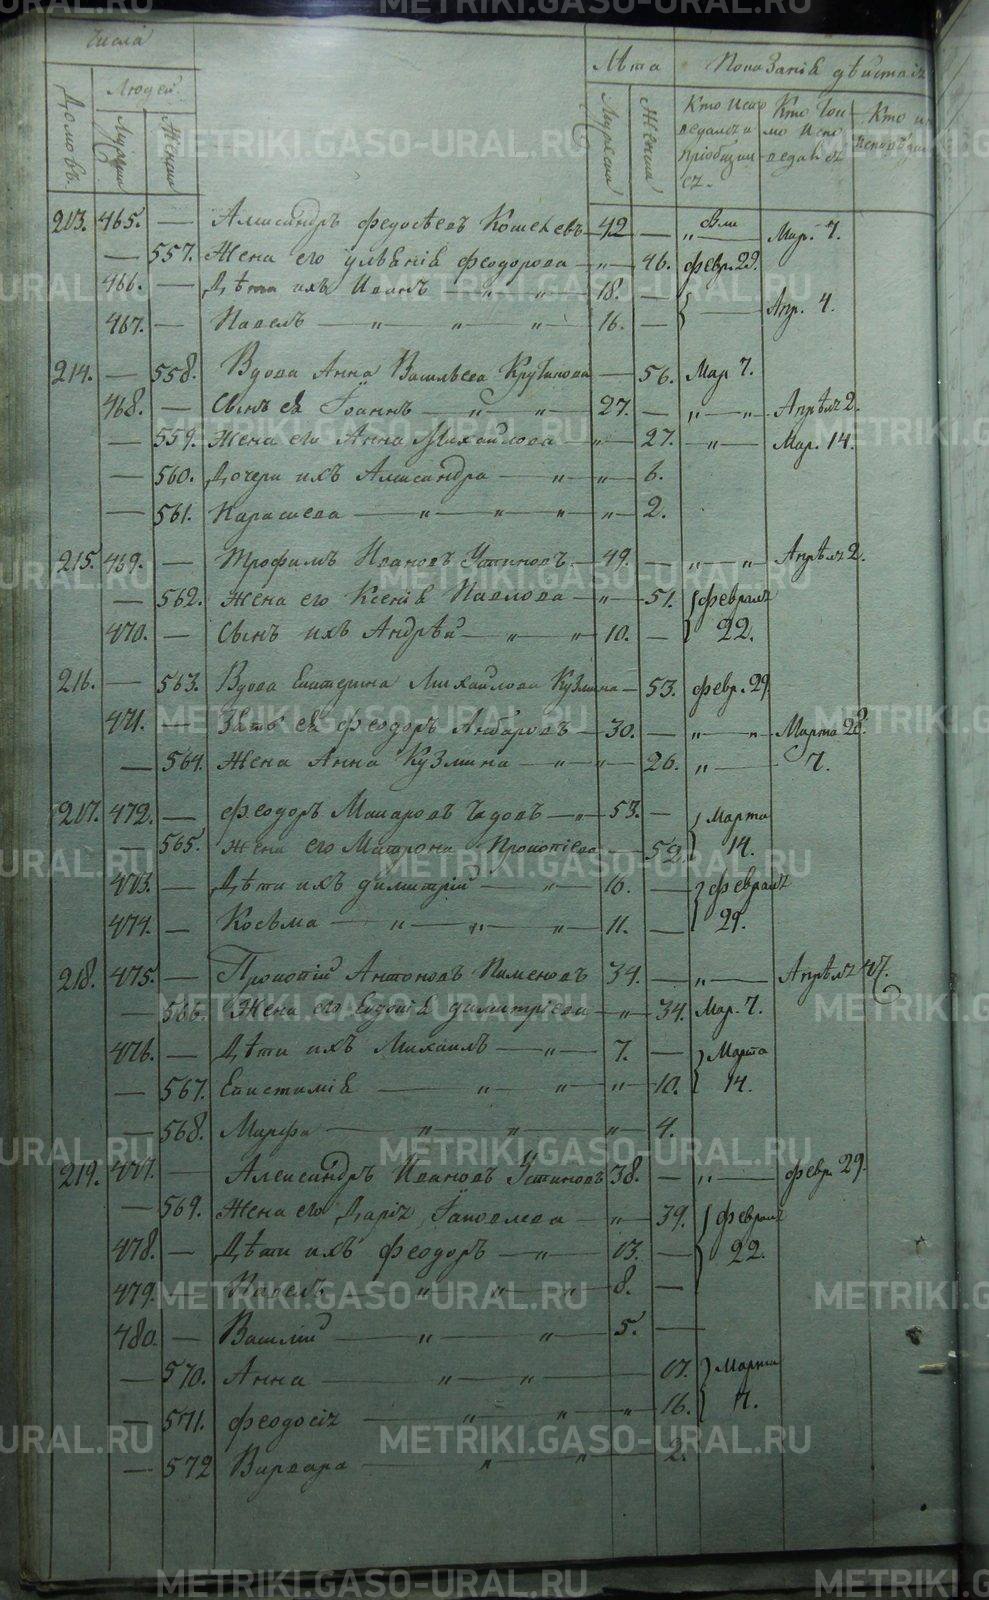 Числа
Людей
Домовъ.
Мужска
Женска
Лѣта
Мужеска
Женска
Показаніе дѣйства
Кто испо
ведался и
пріобщил
ся.
Кто
мо испо
ведался
Кто
203. 465. — Александръ Федосѣевъ Кошелевъ — 42 — „ — Мар. 7.
— 557. Жена его Ульянія Феодорова — „ — 46. Февр. 29.
466. — Дѣти ихъ Иванъ — „ — „ 18. — — Апр. 4.
467. — Павелъ — „ — „ — „ — 16. —
214. — 558. Вдова Анна Васильева — 56. Мар 7.
468. — Сынъ ея Іоаннъ — „ — „ — 27. — „ — „ — Апрѣля 2.
— 559. Жена его Анна Михайлова — „ — 27. — „ — Мар. 14.
— 560. Дочери ихъ Александра — „ — „ — 6.
— 561. Параскева — „ — „ — „ — „ — 2.
215. 469. — Трофимъ Ивановъ Устиновъ — 49. — „ — „ — Апрѣля 2.
— 562. Жена его Ксенія Павлова — „ — 51. Февраля
470. — Сынъ ихъ Андрѣй — „ — „ 10. — 22.
216. — 563. Вдова Екатерина Михайлова Кузмина — 53. Февр. 29.
471. — Зять ея Феодоръ — 30. — „ — „ — Марта 28.
— 564. Жена Анна Кузмина — „ — „ — 26. „ — 7.
217. 472. — Феодоръ Макаровъ — „ — 53. — Марта
— 565. Жена его Матрона Прокопіева — 52. 14.
473. — Дѣти ихъ Димитрій — „ — 16. — Февраля
474. — Косьма — „ — „ — „ — 11. — 29.
218. 475. — Прокопій Антоновъ Пименовъ 34. — „ — Апрѣля
— 566. Жена его Димитріева — „ — 34. Мар. 7.
476. — Дѣти ихъ Михаилъ — „ — 7. — Марта
— 567. Епистимія — „ — „ — „ — 10. 14.
— 568. Марфа — „ — „ — „ — 4.
219. 477. — Александръ Ивановъ Устиновъ 38. — „ — Февр. 29.
— 569. Жена его Дарія Іаковлева — „ — 39. Февраля
478. — Дѣти ихъ Феодоръ — „ — 13. — 22.
479. — Павелъ — „ — „ — „ — 8. —
480. — Василій — „ — „ — 5. —
— 570. Анна — „ — „ — 17. Марта
— 571. Феодосія — „ — „ — „ — 16. 7.
— 572 Варвара — „ — „ — 2.
METRIKI.GASO-URAL.RU